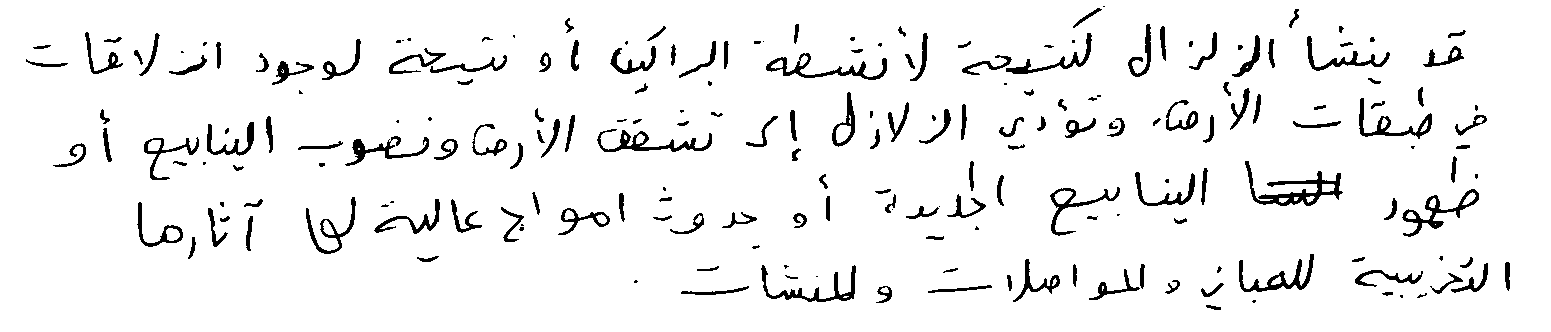 قد ينشأ الزلزال كنتيجة لأنشطة البراكين أو نتيجة لوجود انزلاقات
في طبقات الأرض. وتؤدي الزلازل إلى تشقق الأرض ونضوب الينابيع أو
ظهور الينابيع الجديدة أو حدوث امواج عالية لها آثارها
التخريبية للمباني والمواصلات والمنشات .